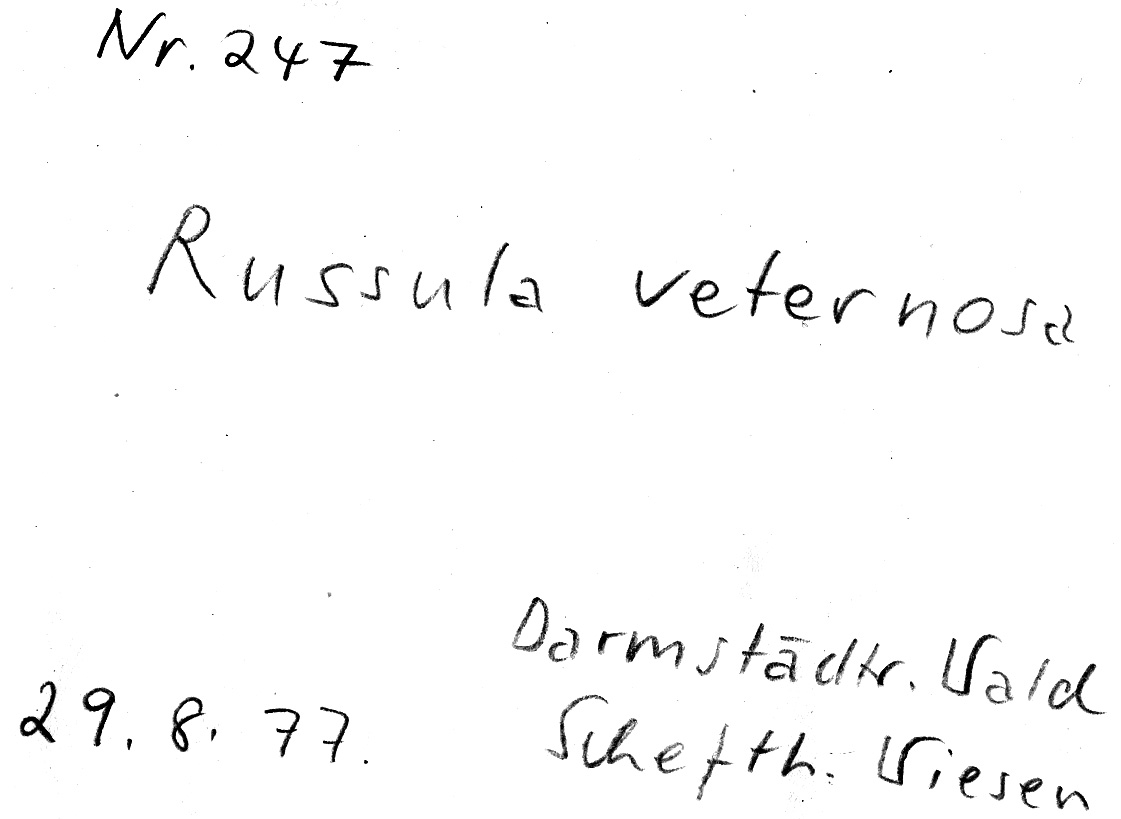 Nr. 247
Russula veternosa
Darmstädtr. Wald
29. 8. 77. Schefth. Wiesen